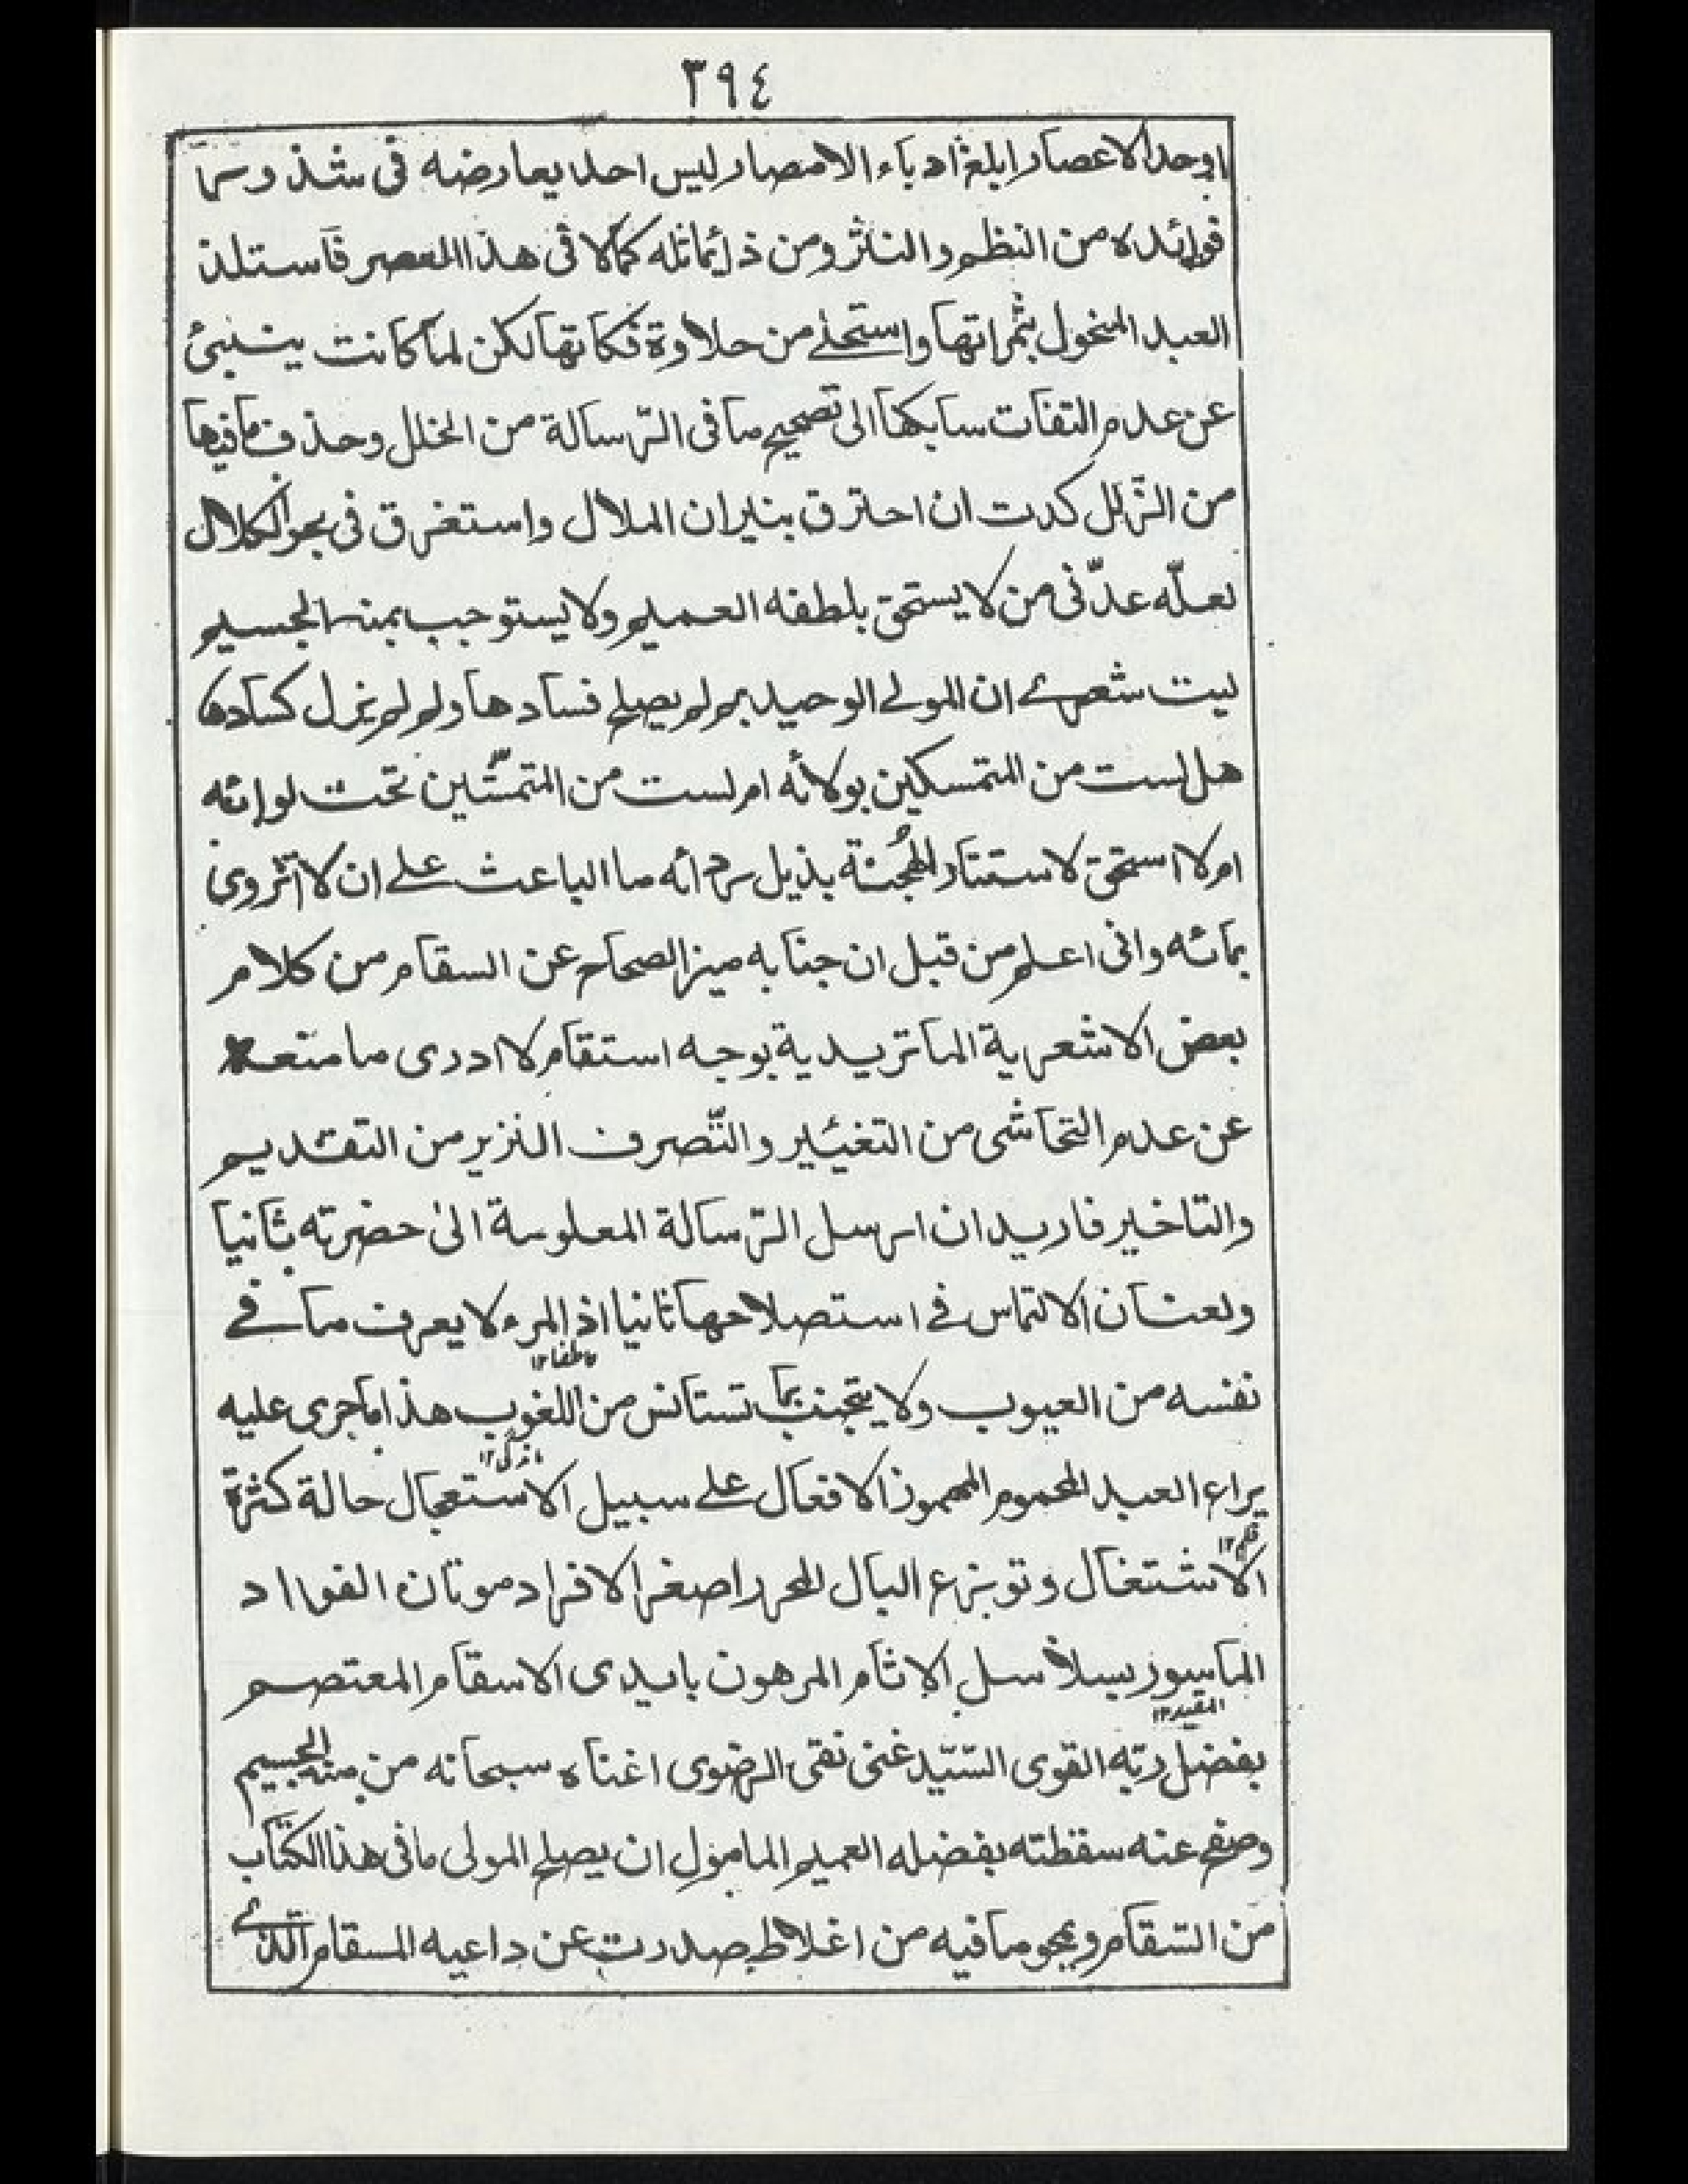 ٣٩٤
اوحد الاعصار ابلغ ادباء الامصار ليس احد يعارضه فى شذور سما
فوائده من النظم والنثر ومن ذا يماثله كمالا فى هذا العصر فاستلذ
العبد المنحول بثمراتها واستحلى من حلاوة فكاتها لكن لما كانت ينبئ
عن عدم التفات سابكها الى تصحيح ما فى الرّسالة من الخلل وحذف ما فيها
من الزّلل كدت ان احترق بنيران الملال واستغرق فى بحر الكلال
لعلّه عدّنى من لا يستحق بلطفه العميم ولا يستوجب بمنه الجسيم
ليت شعرى ان المولى الوحيد بم لم يصلح فسادها ولم لم يزل كسادها
هل لست من المتمسكين بولائه ام لست من المتمشّين تحت لوائه
ام لا استحق لاستتار الهُجنة بذيل ردائه ما الباعث على ان لا اتروى
بمائه وانى اعلم من قبل ان جنابه ميز الصحاح عن السقام من كلام
بعض الاشعرية الماتريدية بوجه استقام لا ادرى ما منعه
عن عدم التحاشى من التغيير والتّصرف النزير من التقديم
والتاخير فاريد ان ارسل الرّسالة المعلومة الى حضرته ثانيا
ولعنان الالتماس فى استصلاحها ثانيا اذ المرء لا يعرف ما فى
عاطفا ١٢
نفسه من العيوب ولا يتجنب بما تستانس من اللغوب هذا ما جرى عليه
ماندگى ١٢
يراع العبد المحموم المهموز الافعال على سبيل الاستعجال حالة كثرة
قلم ١٢
الاشتغال وتوزع البال المحرر اصغر الافراد موتان الفوااد
الماسور بسلاسل الاثام المرهون بايدى الاسقام المعتصم
المقيد ١٢
بفضل ربّه القوى السّيّد غنى نقى الرضوى اغناه سبحانه من منّه الجسيم
وصفح عنه سقطته بفضله العميم المامول ان يصلح المولى ما فى هذا الكتاب
من السّقام ويمحو ما فيه من اغلاط صدرت عن داعيه المسقام الّذى